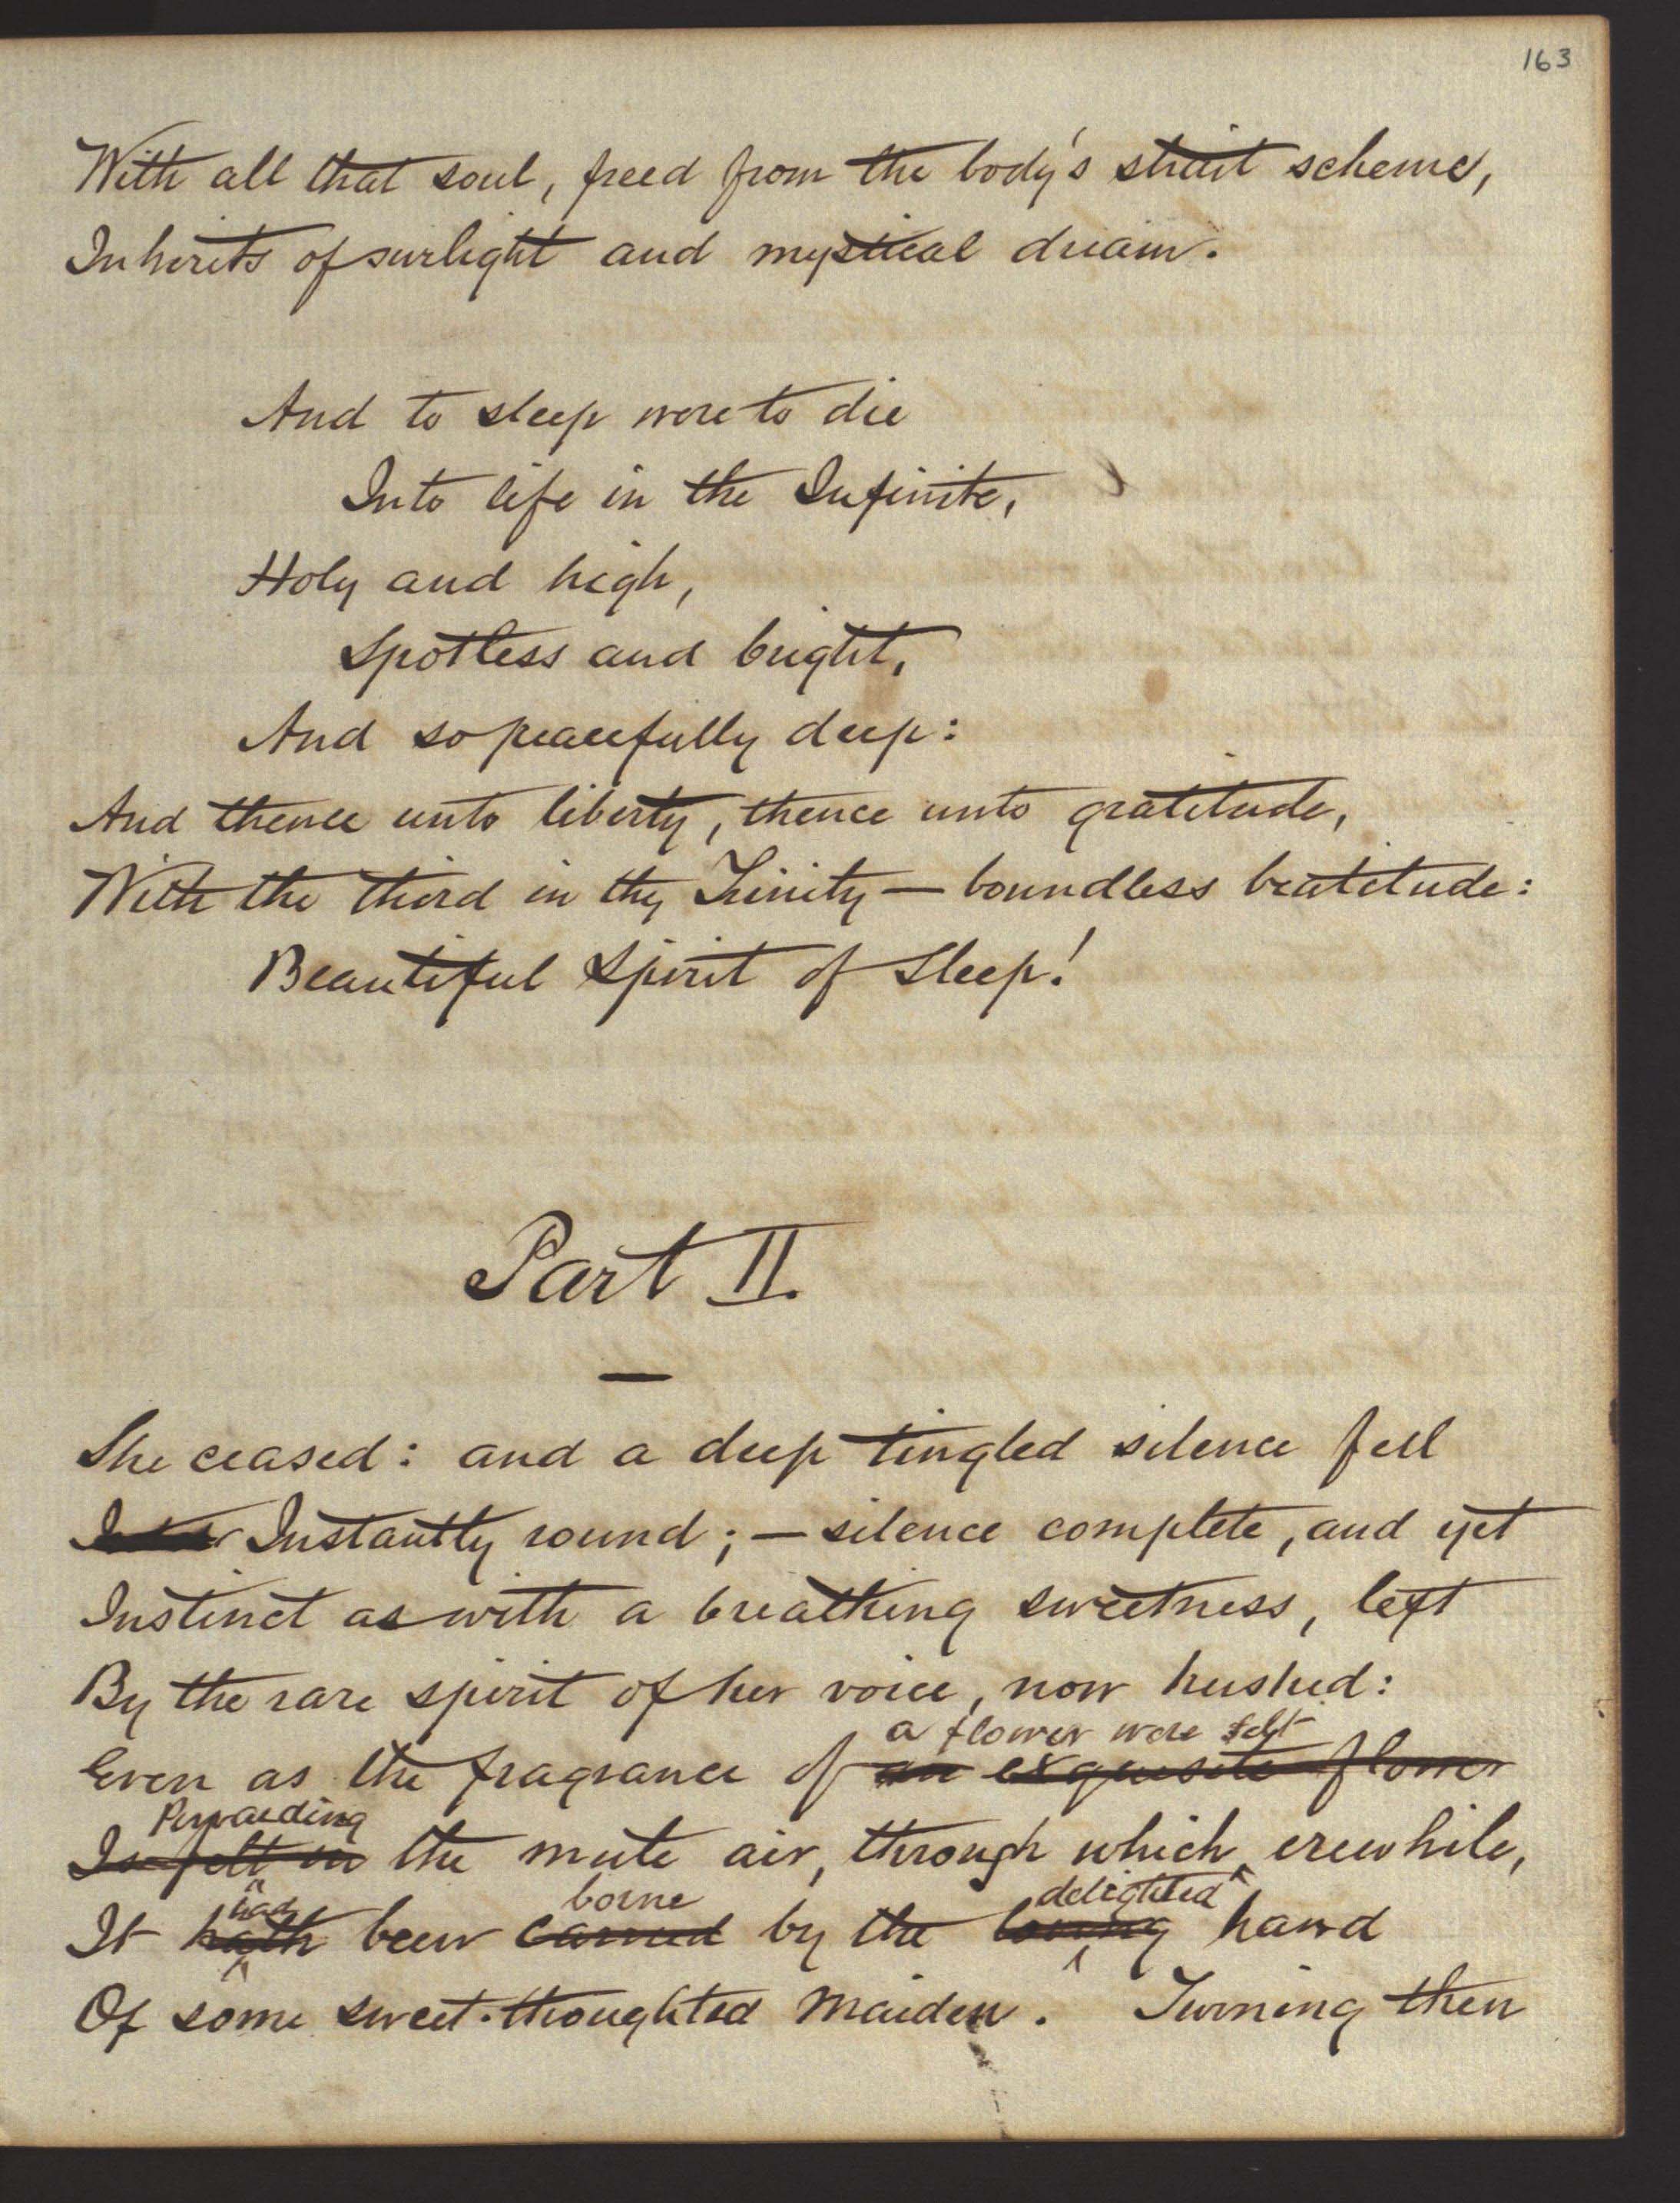 163
With all that soul, freed from the body's strait scheme,
Inherits of surlight and mystical dream.
And to sleep were to die
Into life in the Infinite,
Holy and high,
Spotless and bright,
And so peacefully deep:
And thence unto liberty, thence unto gratitude,
With the third in thy Trinity — boundless beatitude:
Beautiful Spirit of Sleep!
Part II.
She ceased: and a deep tingled silence fell
Instantly round; — silence complete, and yet
Instinct as with a breathing sweetness, left
By the rare spirit of her voice, now hushed:
a flower were felt
Even as the fragrance of an exquisite flower
Pervading
Is felt in the mute air, through which erewhile,
had borne delighted
It hath been carried by the loving hand
Of some sweet-thoughted maiden. Turning then